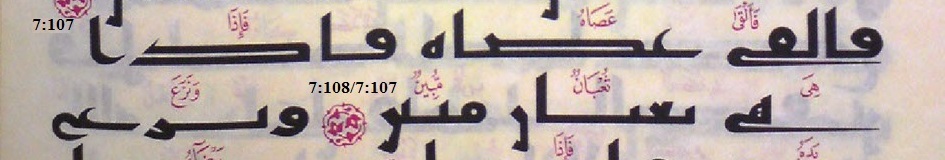 فَأَلْقَىٰ عَصَاهُ فَإِذَا 7:107
فالقى عصاه فاذا
هِيَ ثُعْبَانٌ مُّبِينٌ 7:108/7:107 وَنَزَعَ
هى ثعبان مبين ونزع
يَدَهُ فَإِذَا